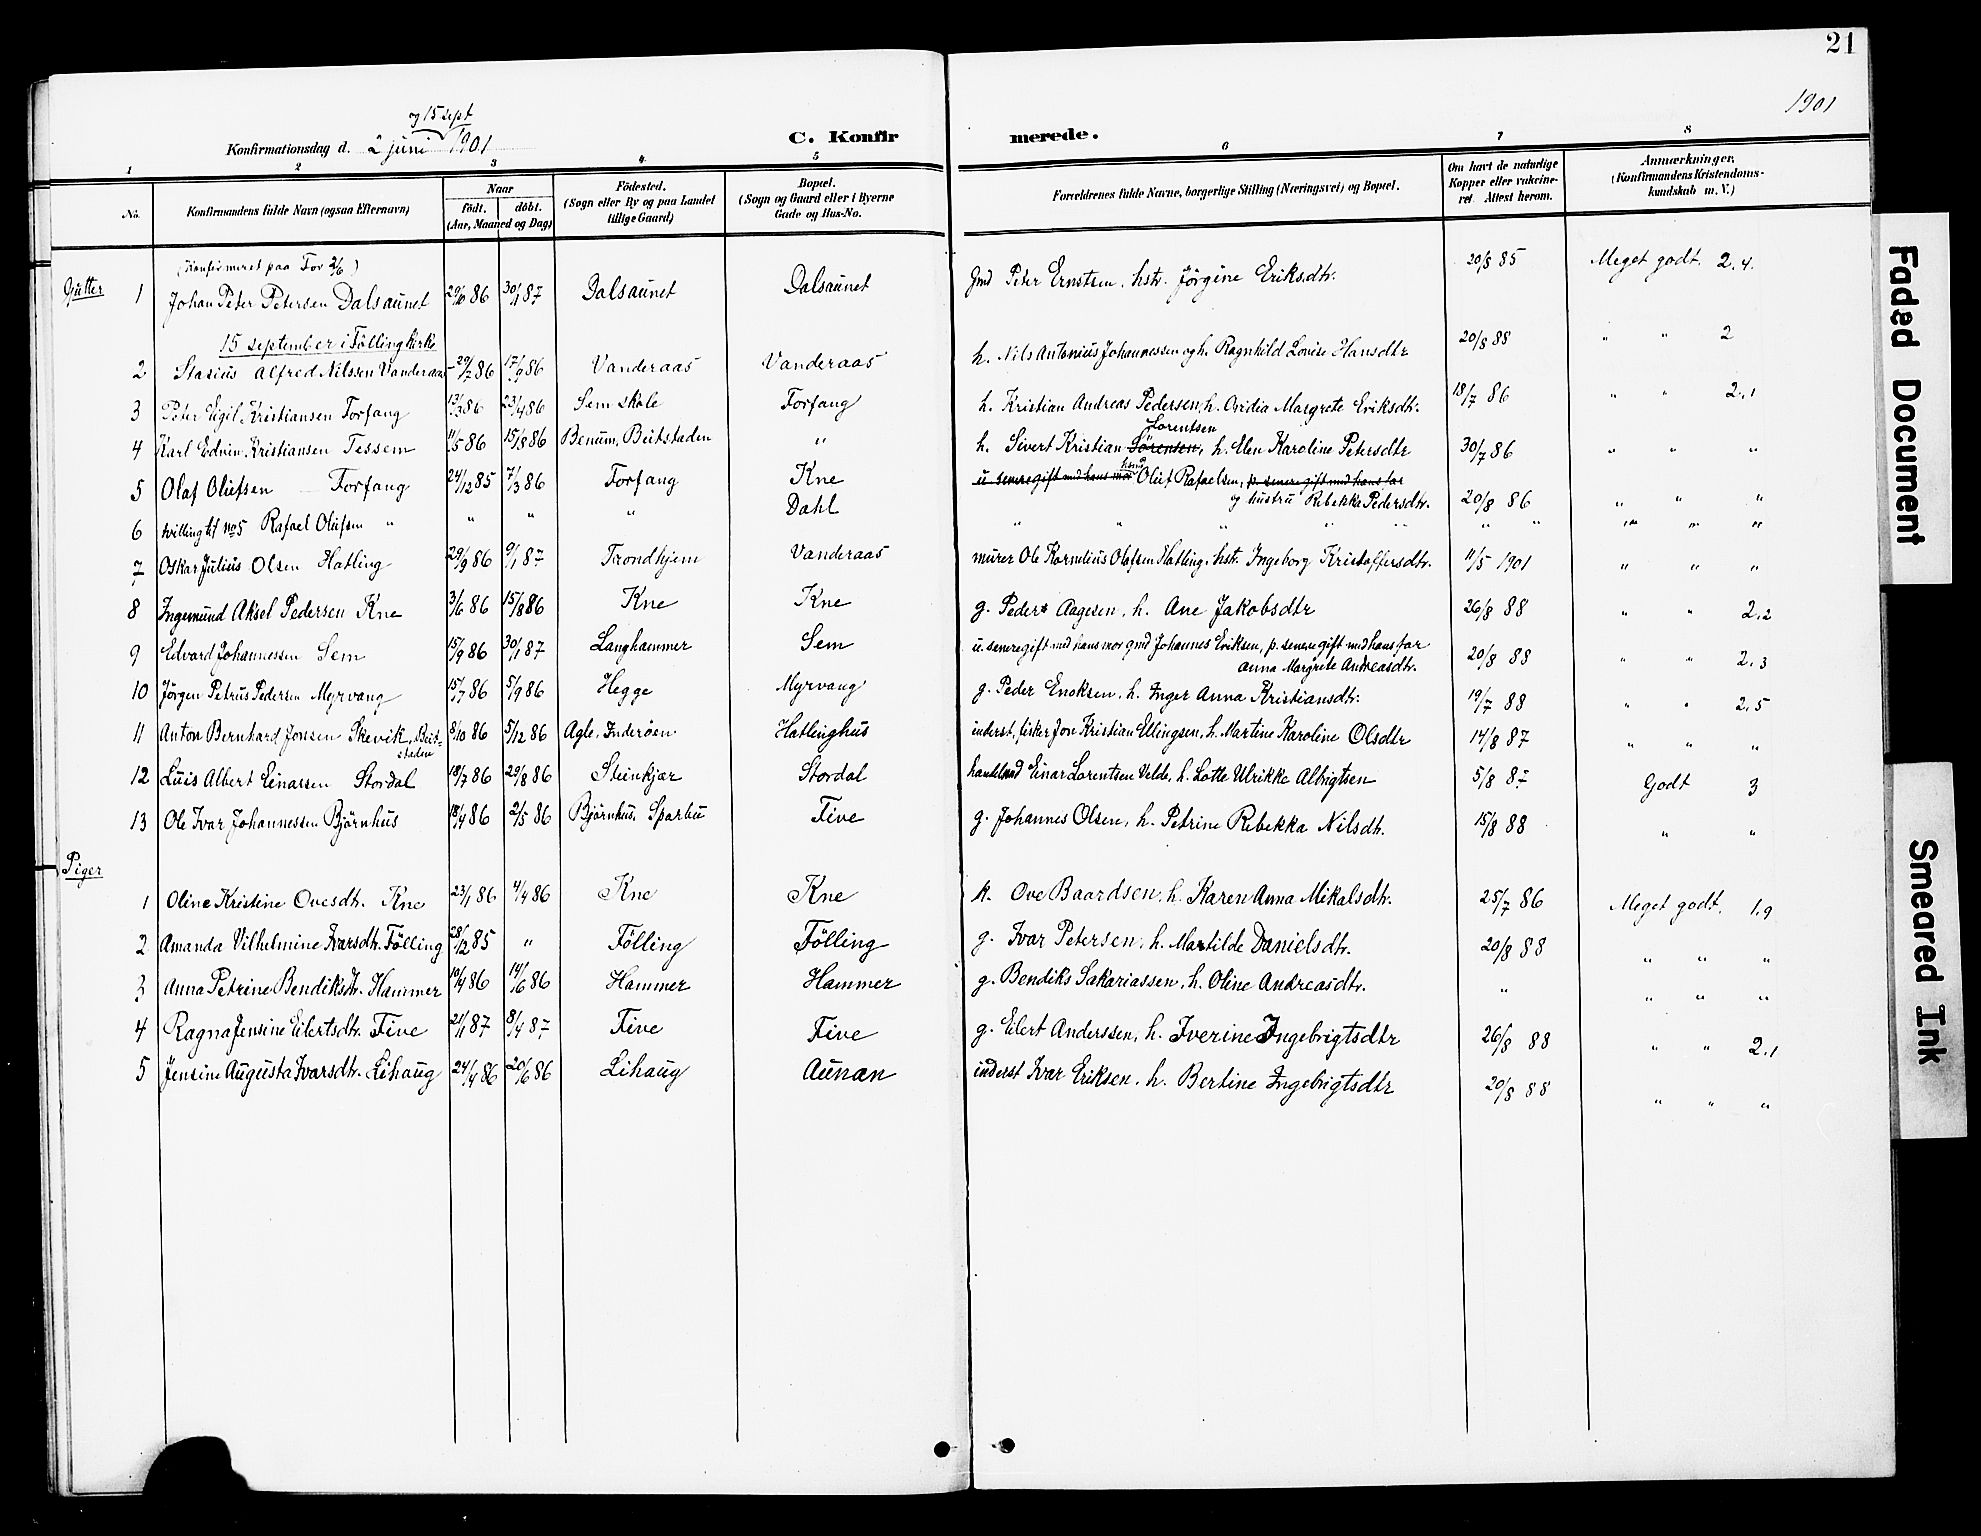 21
1901
og 15 sept
Konfirmationsdag d. 2 juni 1901
C. Konfir merede.
1 2 3 4 5 6 7 8
No.
Konfirmandens fulde Navn (ogsaa Efternavn)
Naar
født. døbt.
(Aar, Maaned og Dag)
Fødested.
(Sogn eller By og paa Landet
tillige Gaard)
Bopæl.
(Sogn og Gaard eller i Byerne
Gade og Hus-No.
Forældrenes fulde Navne, borgerlige Stilling (Næringsvei) og Bopæl.
Om havt de naturlige
Kopper eller vakcine-
ret. Attest herom.
Anmærkninger,
(Konfirmandens Kristendoms-
kundskab m. V.)
(Konfirmeret paa For 2/6)
Gutter 1 Johan Peter Petersen Dalsaunet 29/6 86 30/1 87 Dalsaunet Dalsaunet Gmd Peter Ernstsen, hstr. Jörgine Eriksdtr. 20/8 85 Meget godt. 2.4.
15 september i Fölling kirke
2 Stasius Alfred Nilssen Vanderaas 29/7 86 17/9 86 Vanderaas Vanderaas h. Nils Antonius Johannessen og h. Ragnhild Lovise Hansdtr 20/8 88 " " 2
3 Peter Eigil Kristiansen Forfang 13/3 86 23/4 86 Sem skole Forfang h. Kristian Andreas Pedersen, h. Ovidia Margrete Eriksdtr. 18/7 86 " " 2.1
Lorentsen
4 Karl Edvin Kristiansen Tessem 11/5 86 15/8 86 Benum, Beitstaden " h. Sivert Kristian Sörensen, h. Elen Karoline Petersdtr 30/7 86 " " "
5 Olaf Olüfsen Forfang 24/12 85 7/3 86 Forfang Kne u. senere gift med hans mor Olüf Rafaelsen, p. senere gift med hans far
Dahl og hustru Rebekka Pedersdtr. 20/8 86 " " "
6 tvilling til no 5 Rafael Olüfsen " " " " " " " " " " " " " "
7 Oskar Julius Olsen Hatling 29/9 86 9/1 87 Trondhjem Vanderaas murer Ole Kornelius Olafsen Hatling, hstr. Ingeborg Kristoffersdtr. 11/5 1901 " " "
8 Ingemund Aksel Pedersen Kne 3/6 86 15/8 86 Kne Kne g. Peder Aagesen, h. Ane Jakobsdtr 26/8 88 " " 2.2
9 Edvard Johannessen Sem 15/9 86 30/1 87 Langhammer Sem u. senere gift med hans mor gmd Johannes Eriksen, p. senere gift med hans far
anna Margrete Andreasdtr. 20/8 88 " " 2.3
10 Jörgen Petrus Pedersen Myrvang 15/7 86 5/9 86 Hegge Myrvang g. Peder Enoksen, h. Inger Anna Kristiansdtr. 19/7 88 " " 2.5
11 Anton Bernhard Jonsen Skevik, Beit-
staden 8/10 86 5/12 86 Agle, Inderöen Hatlinghus inderst, fisker Jon Kristian Ellingsen, h. Martine Karoline Olsdtr 14/8 87 " " "
12 Luis Albert Einarsen Stordal 18/7 86 29/8 86 Steinkjær Stordal Einar Lorentsen Velde, h. Lotte Ulrikke Albrigtsen 5/8 Godt 3
13 Ole Ivar Johannessen Björnhus 18/4 86 2/5 86 Björnhus, Sparbu Five g. Johannes Olsen, h. Petrine Rebekka Nilsdtr. 15/8 88 " "
Piger
1 Oline Kristine Ovesdtr. Kne 23/1 86 4/4 86 Kne Kne k. Ove Baardsen, h. Karen Anna Mikalsdtr. 25/7 86 Meget godt. 1.9
2 Amanda Vilhelmine Ivarsdtr. Fölling 28/12 85 " Fölling Fölling g. Ivar Petersen, h. Martilde Danielsdtr. 20/8 88 " " "
3 Anna Petrine Bendiksdtr. Hammer 10/4 86 14/6 86 Hammer Hammer g. Bendiks Sakariassen, h. Oline Andreasdtr. " " " "
4 Ragna Jensine Eilertsdtr. Five 21/1 87 8/4 87 Five Five g. Eilert Anderssen, h. Iverine Ingebrigtsdtr 26/8 88 " " 2.1
5 Jensine Augusta Ivarsdtr. Lihaug 24/4 86 20/6 86 Lihaug Aunan inderst Ivar Eriksen, h. Bertine Ingebrigtsdtr 20/8 88 " " "
Faded Document
Smeared Ink